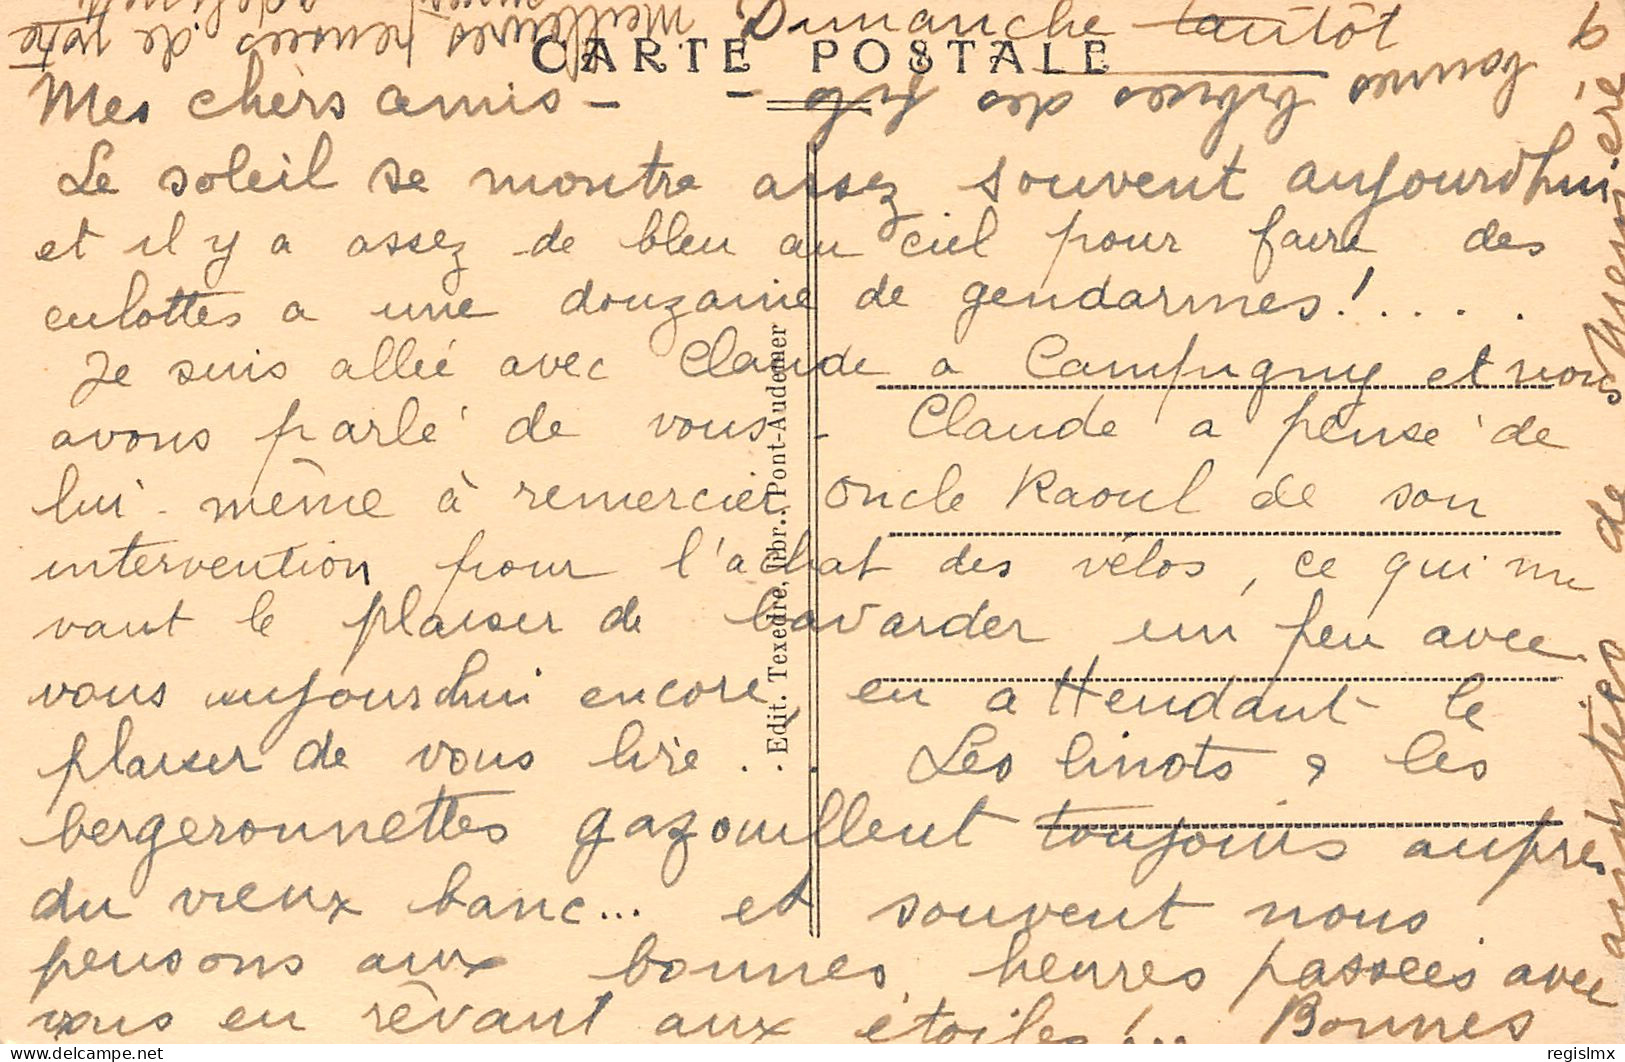 Dimanche tantôt
CARTE POSTALE
Mes chèrs amis -
Le soleil se montre assez souvent aujourd'hui
et il y a assez de bleu au ciel pour faire des
culottes a une douzaine de gendarmes!.....
Je suis allé avec Claude a Campugny et nous
avons parlé de vous - Claude a pensé de
lui-même à remercier oncle Raoul de son
intervention pour l'achat des vélos, ce qui me
vaut le plaisir de bavarder un peu avec
vous aujourdhui encore, en attendant le
plaisir de vous lire... Les linots & les
bergeronnettes gazouillent toujours auprès
du vieux banc... et souvent nous
pensons aux bonnes heures passées avec
vous en rêvant aux étoiles!.. Bonnes
amitiés de
bonnes bises des
meilleures pensées de votre
Edit. Texedre, libr., Pont-Audemer
regislmx